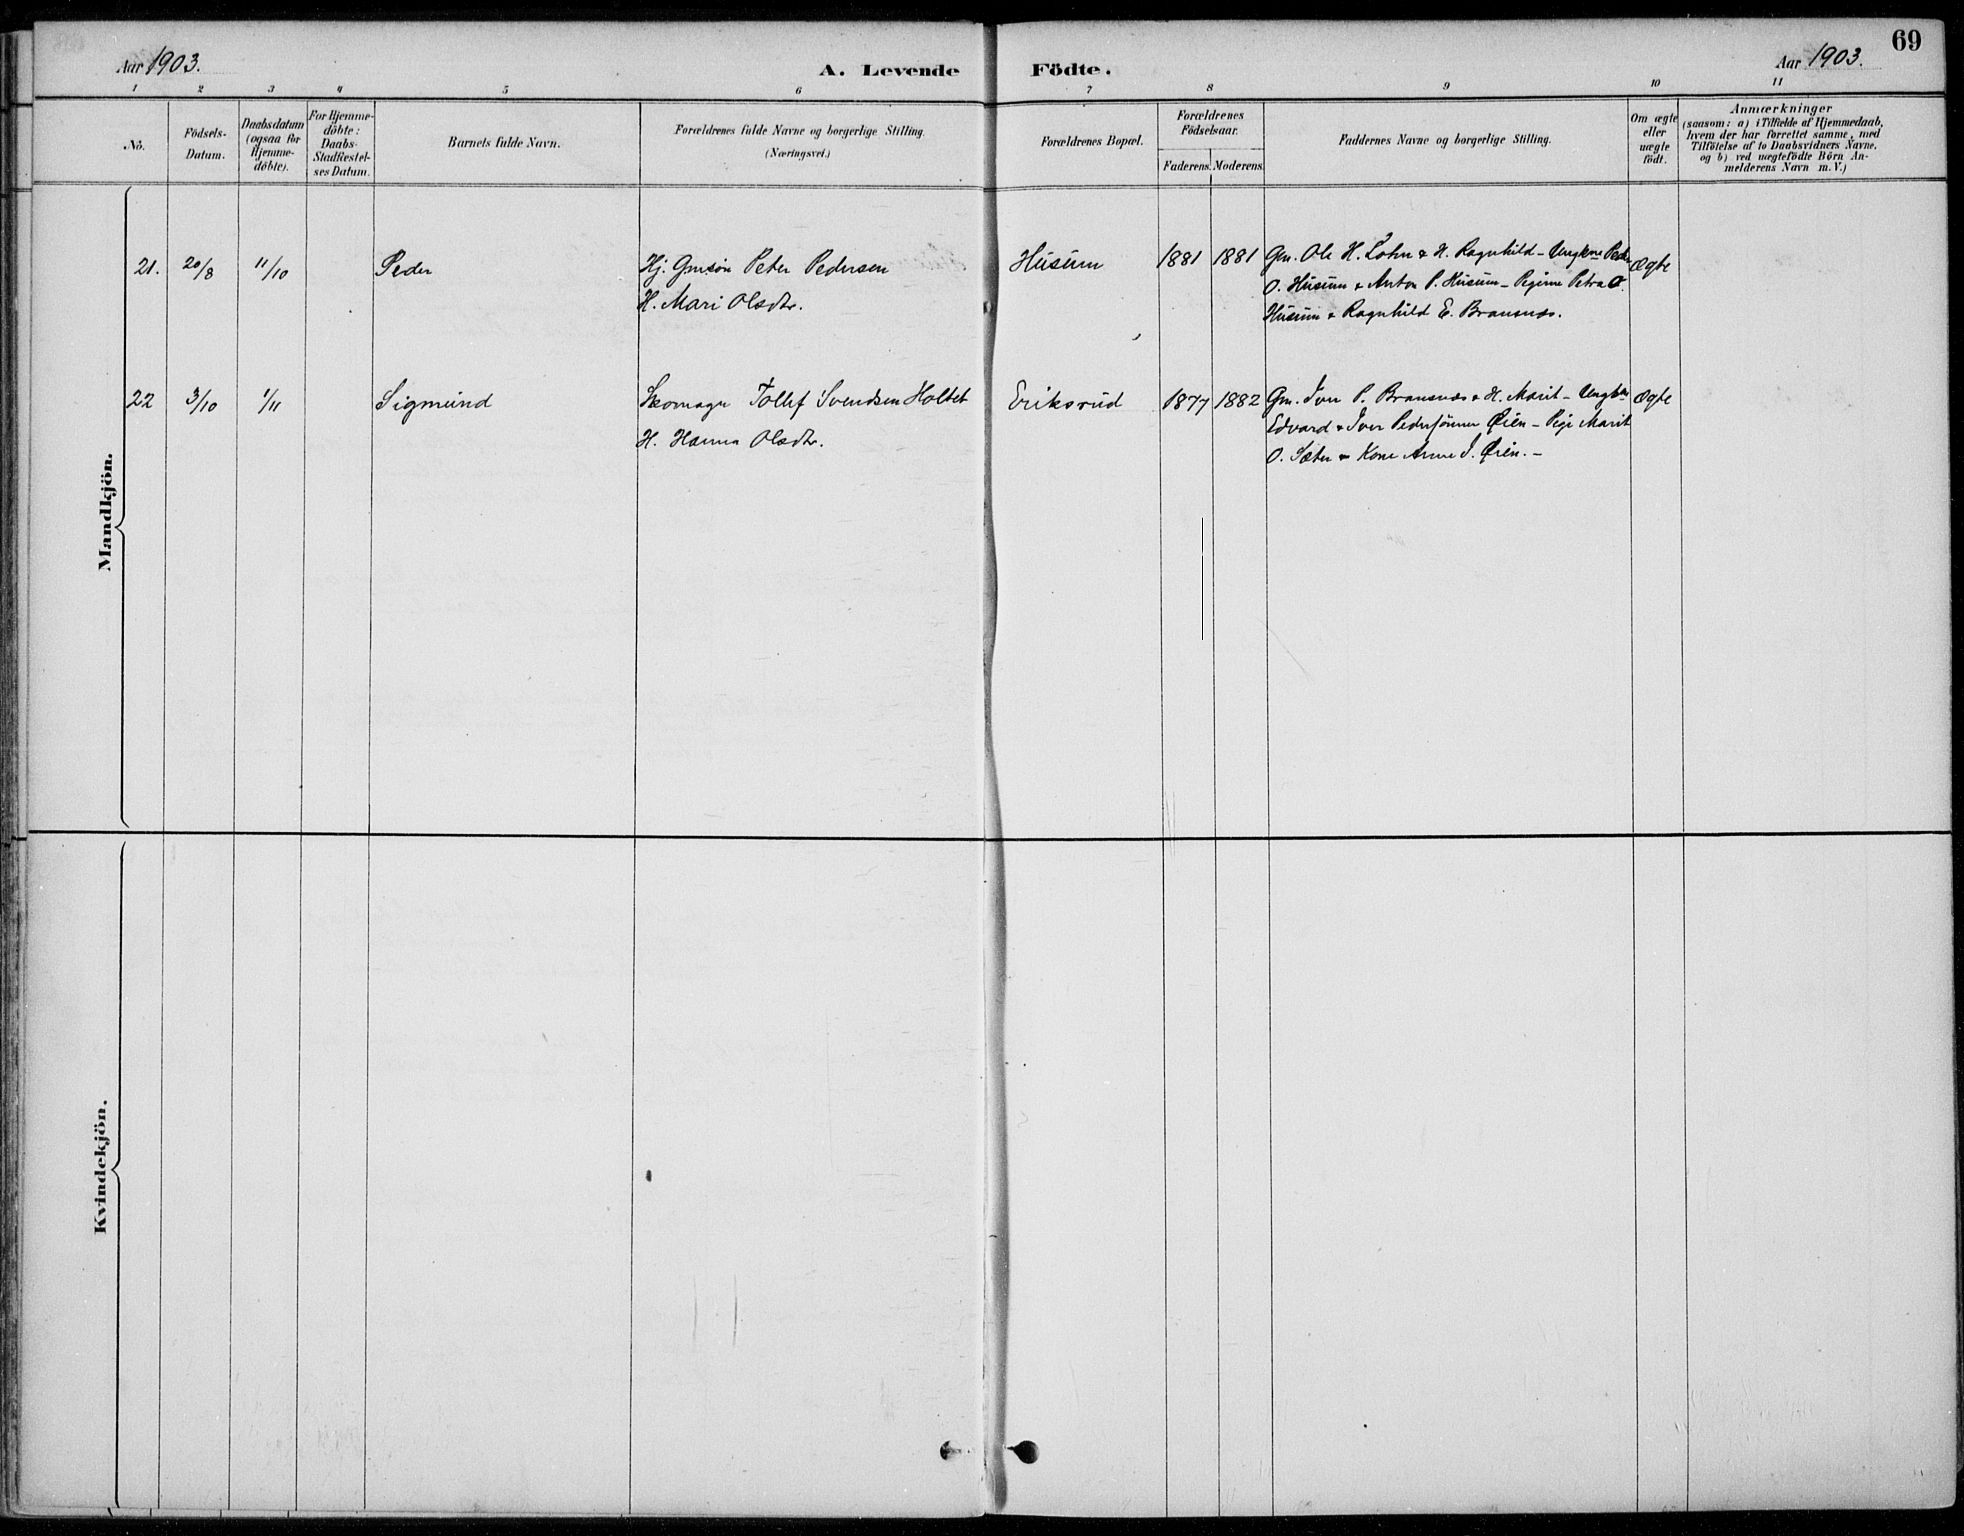 69
Aar 1903.
A. Levende Födte.
Aar 1903.
1 2 3 4 5 6 7 8 9 10 11
No.
Födsels-
Datum.
Daabsdatum
(ogsaa for
Hjemme-
döbte).
For Hjemme-
döbte:
Daabs-
Stadfæstel-
ses Datum.
Barnets fulde Navn.
Forældrenes fulde Navne og borgerlige Stilling.
(Næringsvei.)
Forældrenes Bopæl.
Forældrenes
Födselsaar.
Faderens. Moderens.
Faddernes Navne og borgerlige Stilling.
Om ægte
eller
uægte
födt.
Anmærkninger
(saasom: a) i Tilfælde af Hjemmedaab,
hvem der har forrettet samme, med
Tilföielse af to Daabsvidners Navne,
og b) ved uægtefödte Börn An-
melderens Navn m. V.)
Mandkjön.
21. 20/8 11/10 Peder Hj. Gmsön Peter Pedersen Husum 1881 1881 Gm. Ole H. Lohn & H. Ragnhild - Ungkne Peder Ægte
H. Mari Olsdtr. O. Husum & Anton P. Husum - Pigerne Petra O.
Husum & Ragnhild E. Bransnæs.
22 3/10 1/11 Sigmund Skomager Tollef Svendsen Holtet Eriksrud 1877 1882 Gm. Iver P. Bransnæs & H. Marit - Ungkne Ægte
H. Hanna Olsdtr. Edvard & Iver Pedersönner Øien - Pige Marit
O. Sæter & Kone Anne I. Øien. -
Kvindekjön.